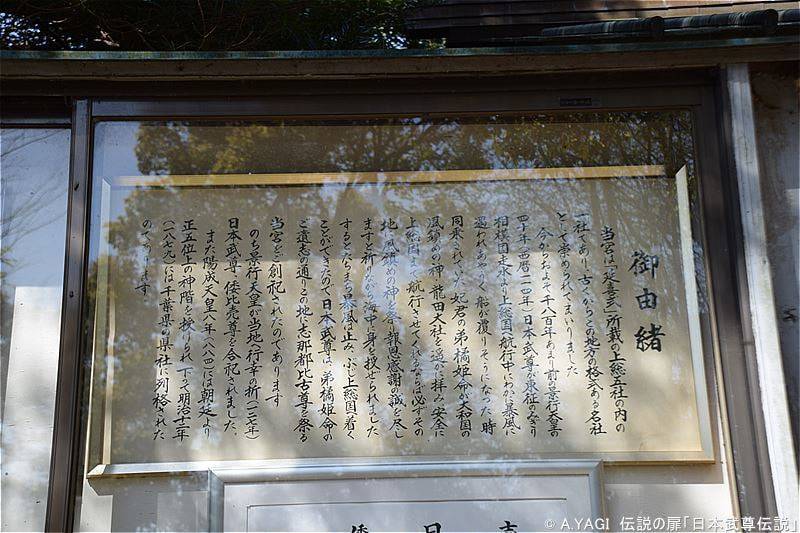 御由緒
当宮は「延喜式」所載の上総五社の内の
一社であり、古くからこの地方の格式ある名社
として崇められてまいりました
今からおよそ千八百年あまり前の景行天皇の
四十年(西暦一一四年)日本武尊が東征のみぎり
相模国走水より上総国へ航行中にわかに暴風に
遭われあやうく船が覆りそうになった時
同乗されていた妃君の弟橘姫命が大和国の
風鎮めの神龍田大社を遥かに拝み「安全に
上総国まで航行させてくれるなら必ずその
地に風鎮めの神を祭り報恩感謝の誠を尽し
ます」と祈りながら海中へ身を投ぜられました
するとたちまち暴風は止みぶじ上総国へ着く
ことができたので日本武尊は、弟橘姫命の
ご遺志の通りこの地に志那都比古尊を祭る
当宮をご創祀されたのであります
のち景行天皇が当地へ行幸の折(一二七年)
日本武尊、倭比売尊を合祀されました、
また陽成天皇八年(八八四)には朝廷より
正五位上の神階を授けられ、下って明治十二年
(一八七九)には千葉県の県社に列格された
のであります
© A.YAGI 伝説の扉「日本武尊伝説」